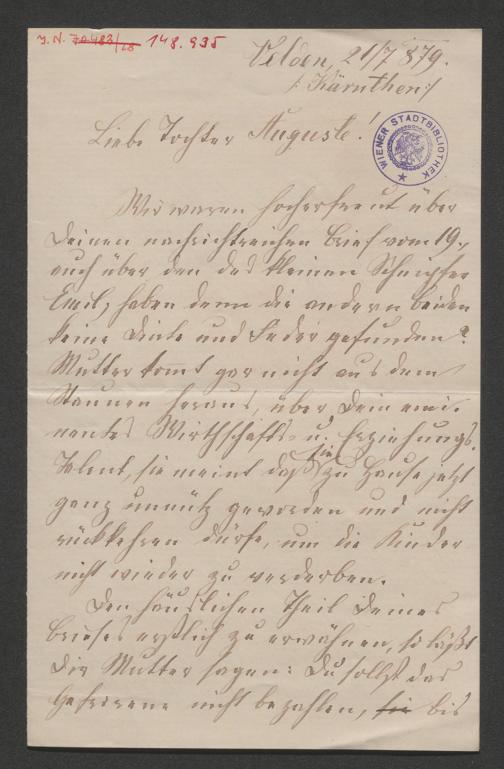 J. N. 70483/28 148.935
Velden, 21/7 879.
/: Kärnthen :/
Liebe Tochter Auguste!
WIENER STADTBIBLIOTHEK
Wir waren hocherfreut über
Deinen nachrichtreichen Brief vom 19.,
auch über den des kleinen
Emil; haben denn die andern beiden
keine Dinte und Feder gefunden?
Mutter komt gar nicht aus dem
Staunen heraus, über Dein emi-
nentes Wirthschafts- u. Erziehungs-
Talent, sie meint daß sie zu Hause jetzt
ganz unnütz geworden und nicht
rückkehren dürfe, um die Kinder
nicht wieder zu verderben.
Den häuslichen Theil Deines
Briefes erstlich zu erwähnen, so läßt
Dir Mutter sagen: Du sollst das
Gefrorene nicht bezahlen, sie bis